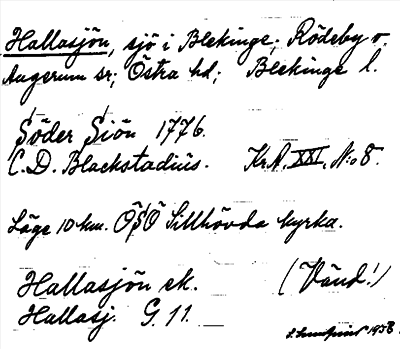 Hallasjön, sjö i Blekinge; Rödeby o.
Augerum sr; Östra hd; Blekinge l.
Söder Siön 1776.
C. D. Blackstadius. Kr.A. XXI, N:o 8.
Läge 10 km. ÖSÖ Sillhövda kyrka.
Hallasjön ek. (Vänd!)
Hallasj. G. 11.
1938.